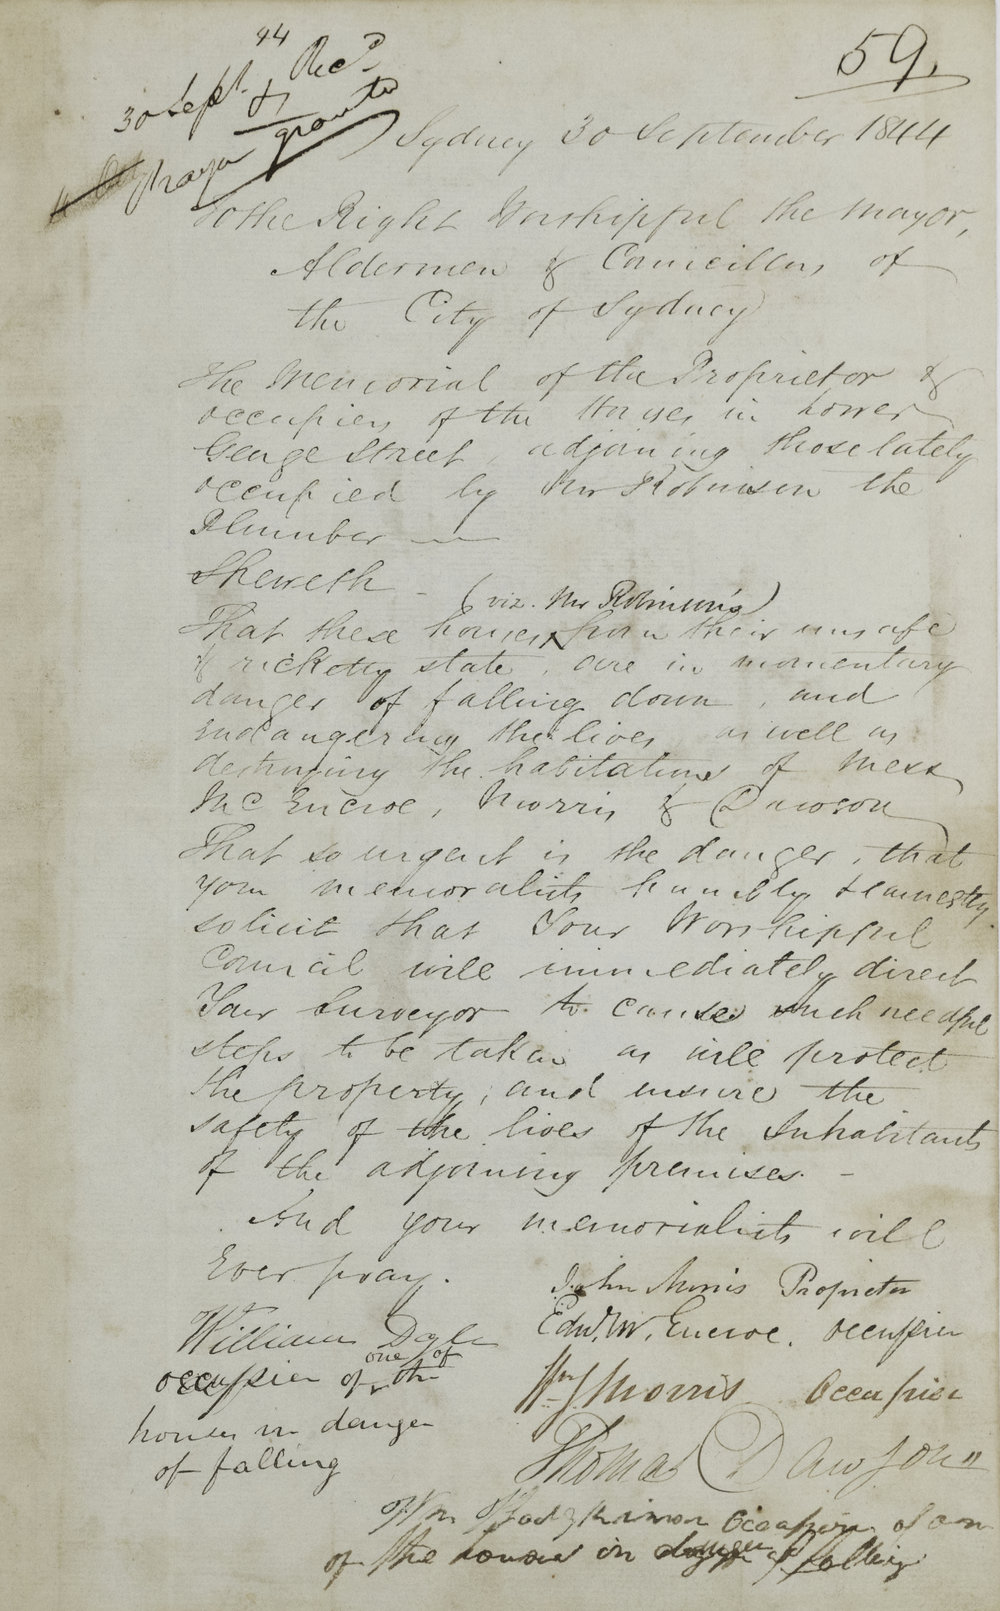 59.
30 Sept. 44 Recd
& 
prayer granted
Sydney 30 September 1844
To the Right Worshipful the Mayor,
Aldermen & Councillors of
the City of Sydney
The Memorial of the Proprietor &
occupiers of the Houses in Lower
George Street, adjoining those lately
occupied by Mr Robinson the
Plumber —
Sheweth –
(viz. Mr Robinson's)
That these houses, from their unsafe
& ricketty state, are in momentary
danger of falling down, and
endangering the lives as well as
destroying the habitations of Mess
McEncroe, Morris & Dawson
That so urgent is the danger, that
your memorialists humbly & earnestly
solicit that Your Worshipful
Council will immediately direct
Your Surveyor to cause such needful
steps to be taken as will protect
the property, and ensure the
safety of the lives of the Inhabitants
of the adjoining premises. –
And your memorialists will
Ever pray.
John Morris Proprietor
Edw. M. Encroe. occupier
Wm J Morris Occupier
Thomas Dawson
William Doyle
occupier of one of the
houses in danger
of falling
Wm Hodgkinson Occupier of one
of the houses in danger of falling